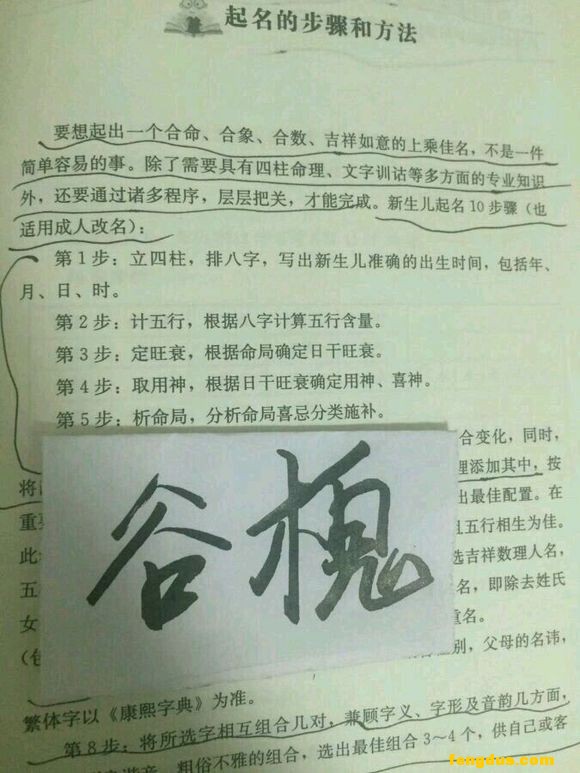 起名的步骤和方法
要想起出一个合命、合象、合数、吉祥如意的上乘佳名，不是一件
简单容易的事。除了需要具有四柱命理、文字训诂等多方面的专业知识
外，还要通过诸多程序，层层把关，才能完成。新生儿起名10步骤（也
适用成人改名）：
第1步：立四柱，排八字，写出新生儿准确的出生时间，包括年、
月、日、时。
第2步：计五行，根据八字计算五行含量。
第3步：定旺衰，根据命局确定日干旺衰。
第4步：取用神，根据日干旺衰确定用神、喜神。
第5步：析命局，分析命局喜忌分类施补。
合变化，同时，
将
理添加其中，按
重
出最佳配置。在
此
且五行相生为佳。
五
选吉祥数理人名，
女
名，即除去姓氏
重名。
别，父母的名讳，
谷槐
繁体字以《康熙字典》为准。
第8步：将所选字相互组合几对，兼顾字义、字形及音韵几方面，
粗俗不雅的组合，选出最佳组合3～4个，供自己或客
fengduo.com